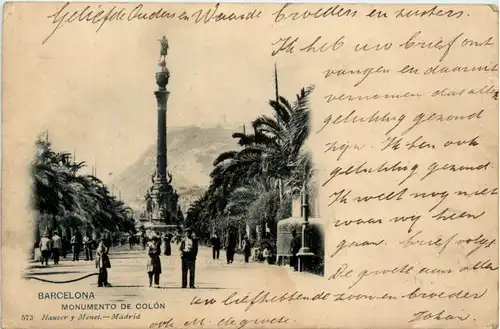 Geliefde Ouders en Waarde broeders en zusters.
Ik heb uw brief ont
vangen en daaruit
vernomen dat allen
gelukkig gezond
zijn. Ik ben ook
gelukkig gezond.
Ik weet nog niet
waar wij heen
gaan. brief volgt
De groete aan allen
uw liefhebbende zoon en broeder
Johan
ook M. de groete
BARCELONA
MONUMENTO DE COLÓN
573 Hauser y Menet.—Madrid